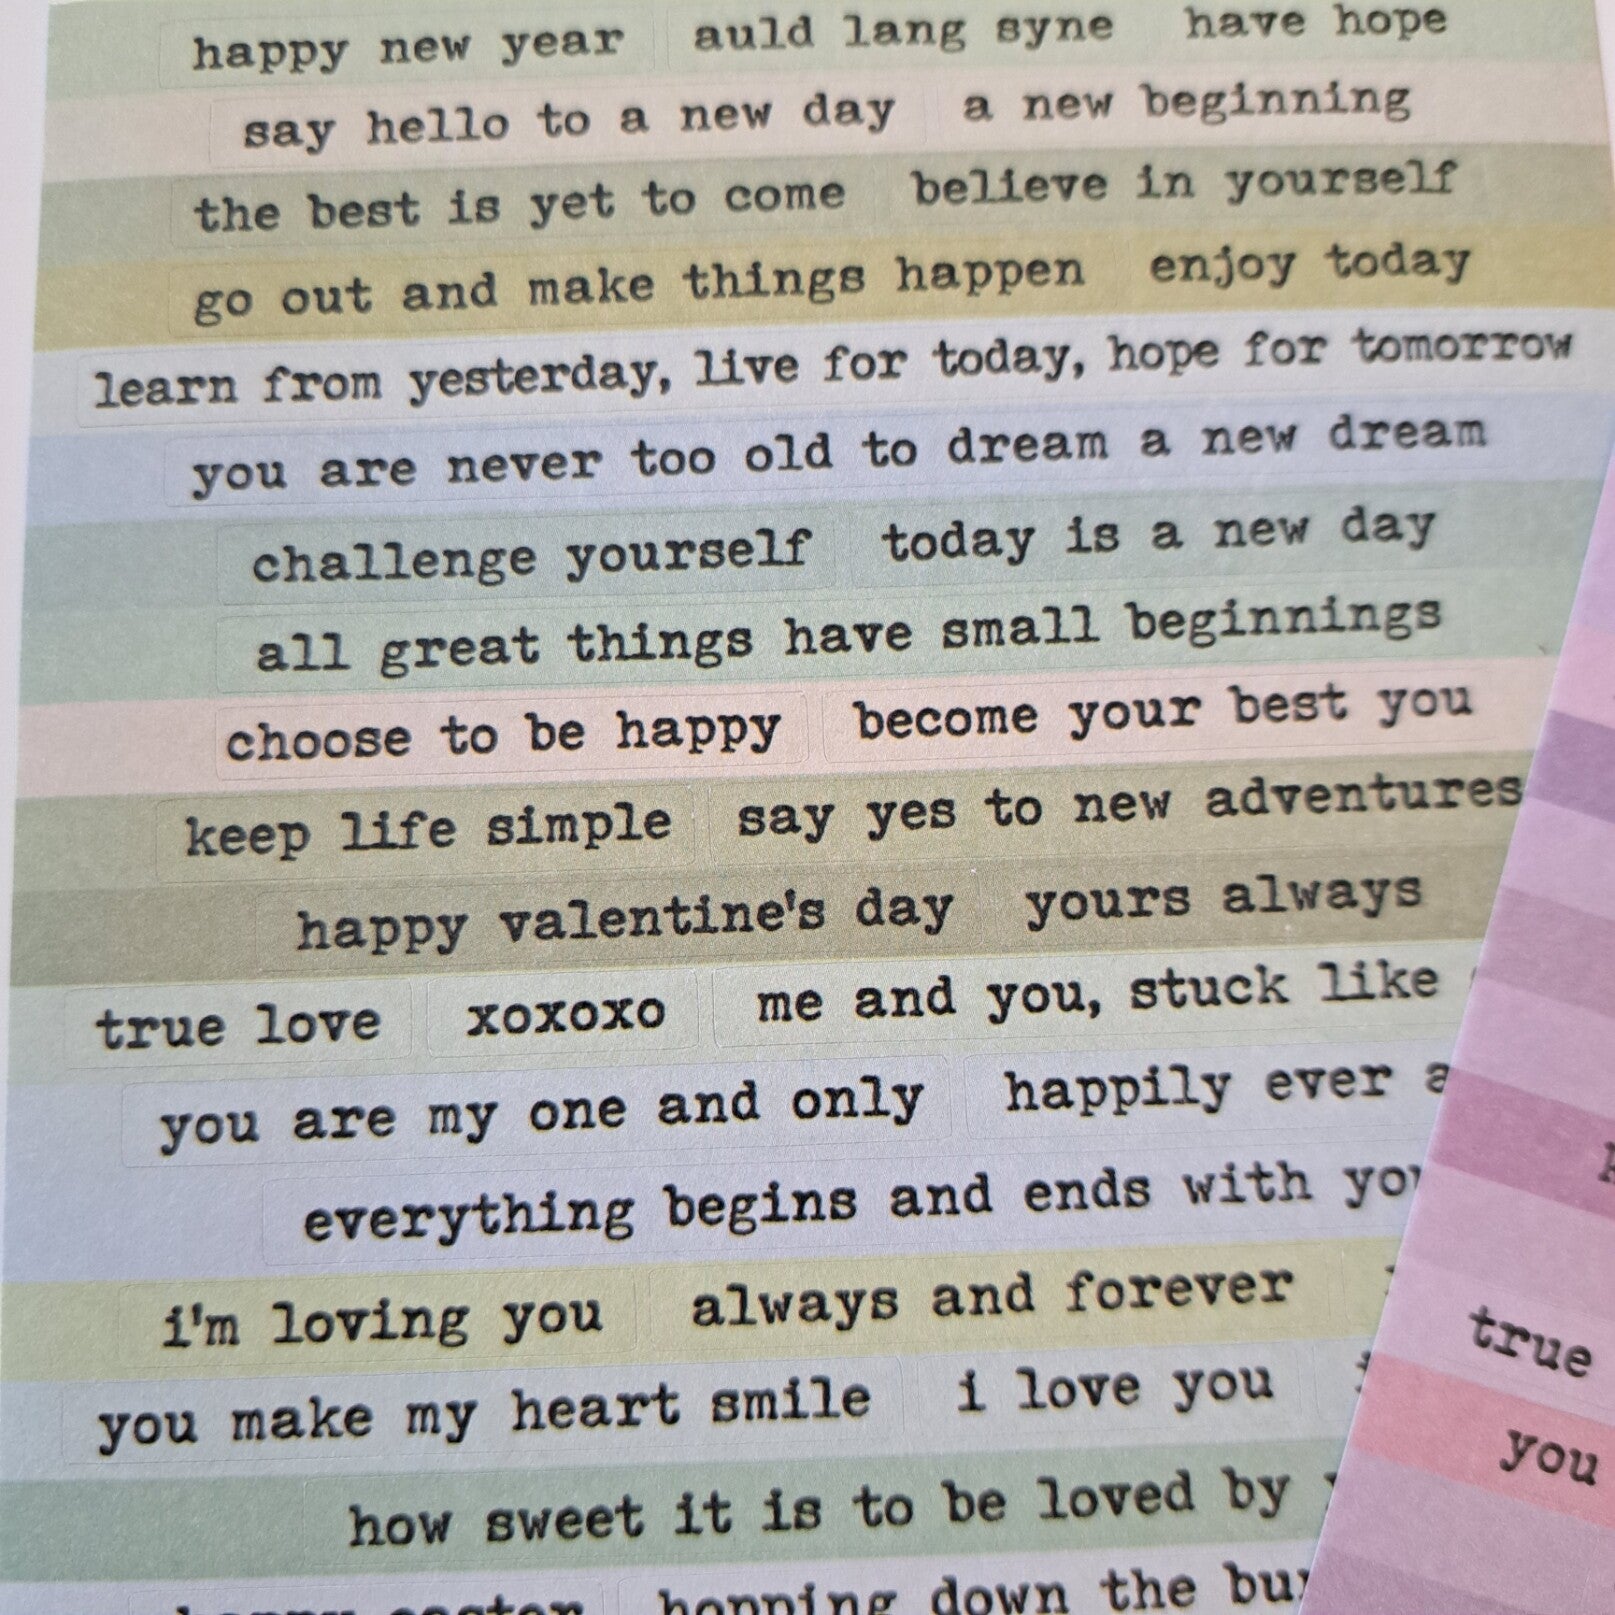 happy new year auld lang syne have hope
say hello to a new day a new beginning
the best is yet to come believe in yourself
go out and make things happen enjoy today
learn from yesterday, live for today, hope for tomorrow
you are never too old to dream a new dream
challenge yourself today is a new day
all great things have small beginnings
choose to be happy become your best you
keep life simple say yes to new adventures
happy valentine's day yours always
true love xoxoxo me and you, stuck like
you are my one and only happily ever
everything begins and ends with
i'm loving you always and forever
you make my heart smile i love you
how sweet it is to be loved by
happy easter hopping down the
true
you